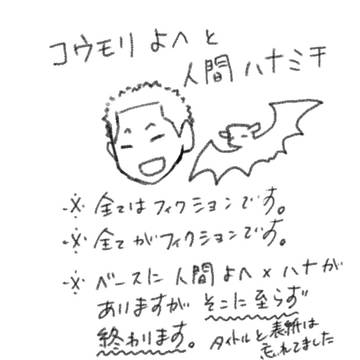 コウモリよへと
人間ハナミチ
※全てはフィクションです。
※全てがフィクションです。
※ベースに人間よへ×ハナが
ありますがそこに至らず
終わります。タイトルと表紙は
忘れてました